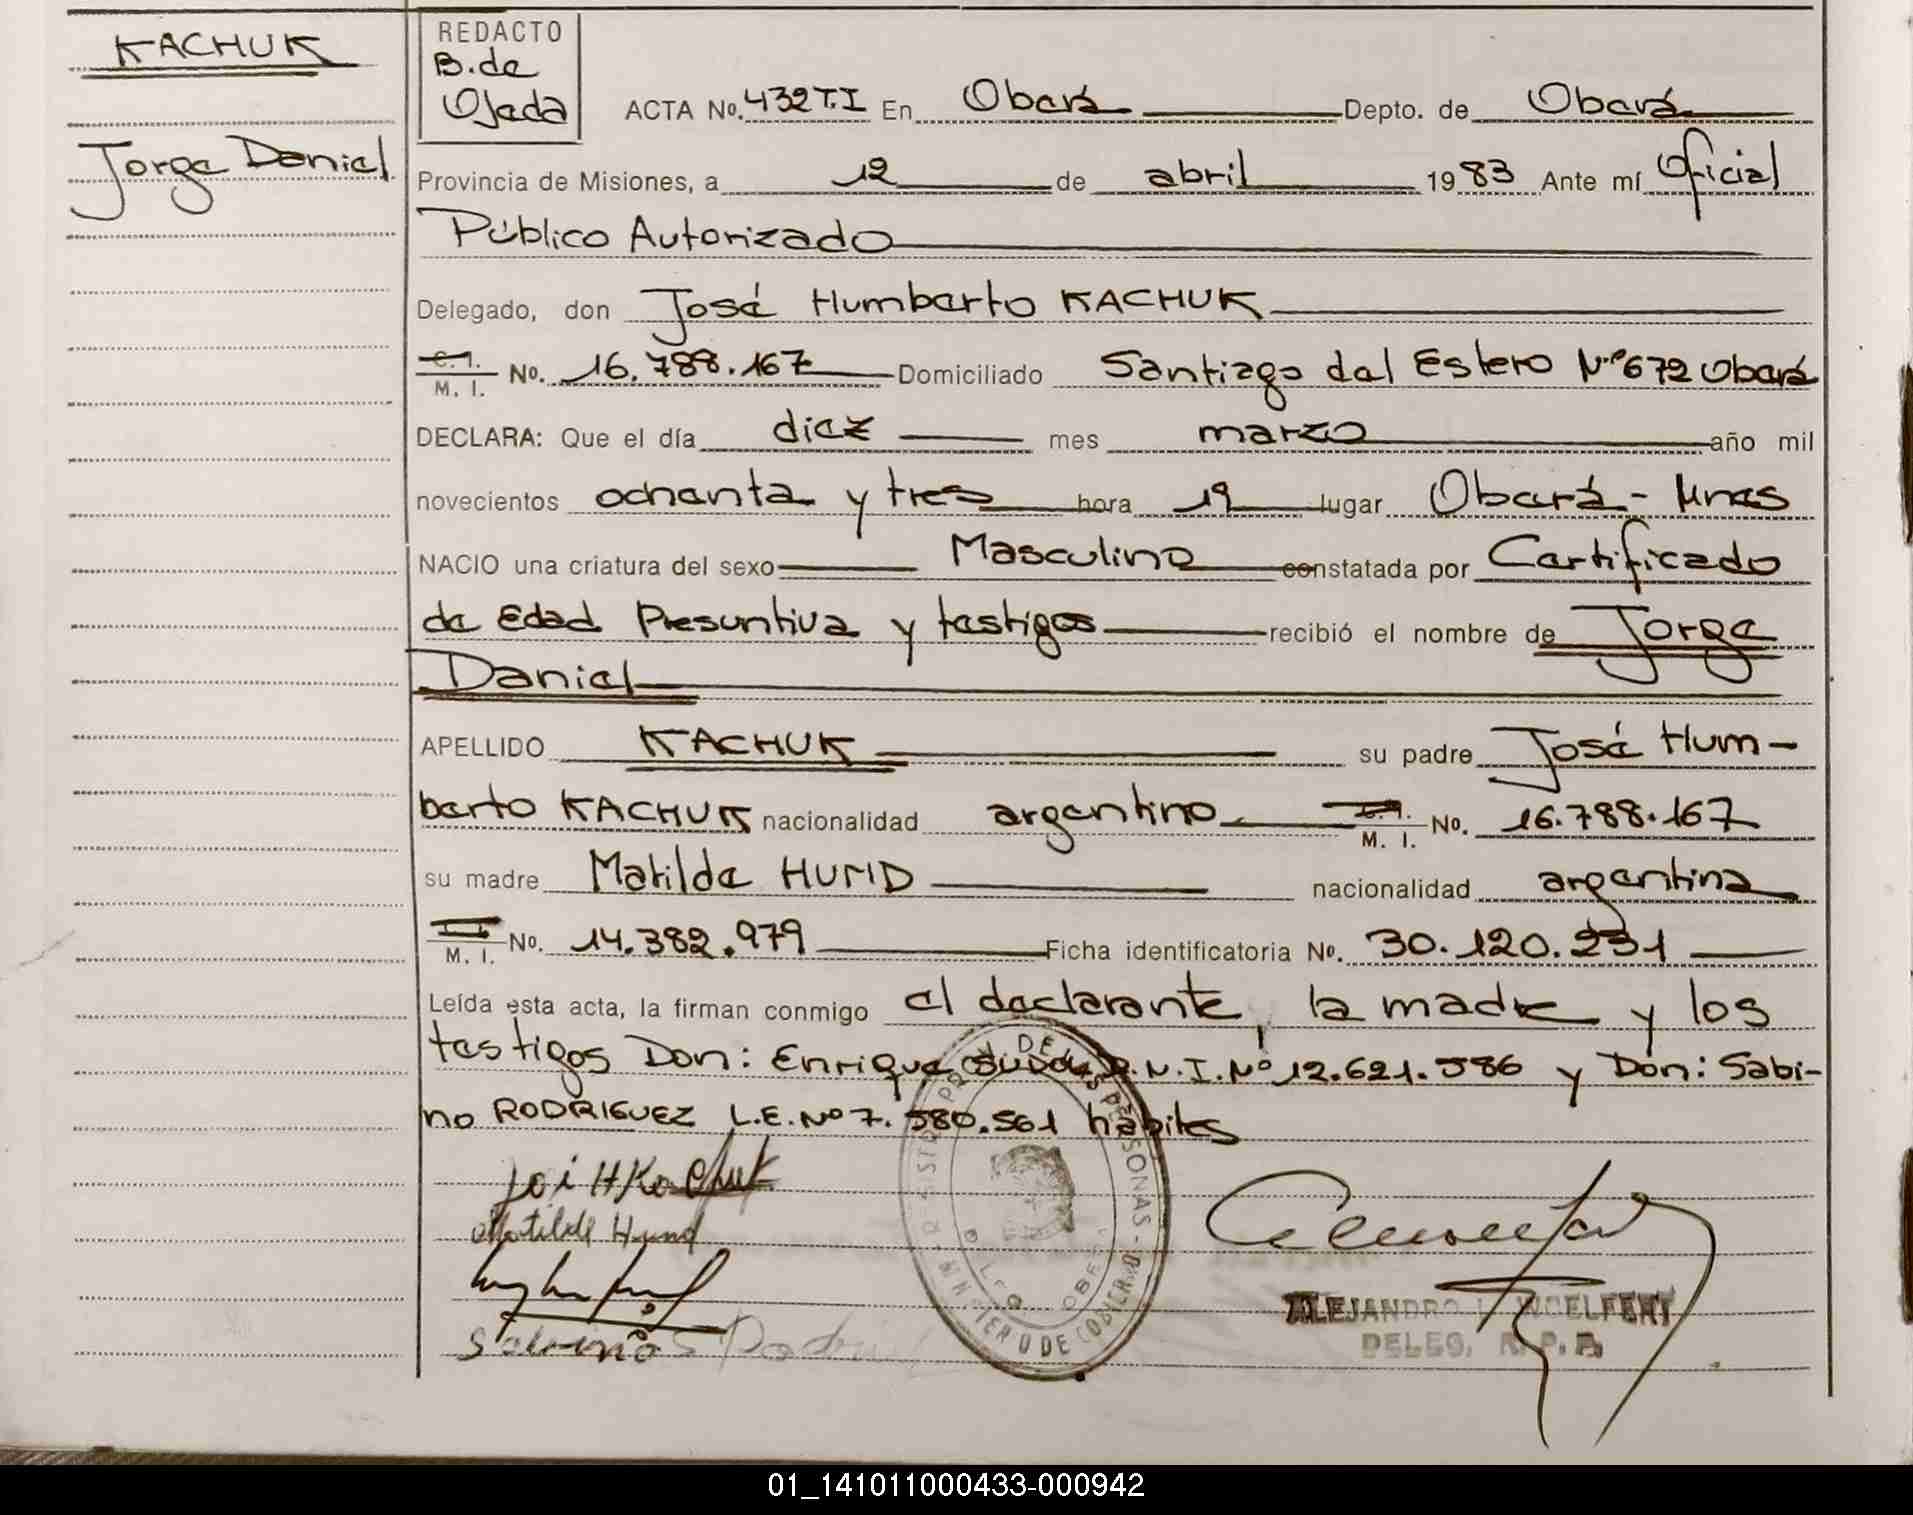 KACHUK
Jorge Daniel
REDACTO
B. de
Ojeda
ACTA No. 432 T.I En Oberá Depto. de Oberá
Provincia de Misiones, a 12 de abril 1983 Ante mí Oficial
Público Autorizado
Delegado, don José Humberto KACHUK
C. I.
M. I. No. 16.788.167 Domiciliado Santiago del Estero Nº 672 Oberá
DECLARA: Que el día diez mes marzo año mil
novecientos ochenta y tres hora 19 lugar Oberá - Mnes
NACIO una criatura del sexo Masculino constatada por Certificado
de Edad Presuntiva y testigos recibió el nombre de Jorge
Daniel
APELLIDO KACHUK su padre José Hum-
berto KACHUK nacionalidad argentino M. I. No. 16.788.167
su madre Matilde HUND nacionalidad argentina
M. I. No. 14.382.979 Ficha identificatoria No. 30.120.231
Leída esta acta, la firman conmigo el declarante, la madre y los
testigos Don: Enrique D.N.I. Nº 12.621.586 y Don: Sabi-
no RODRIGUEZ L.E. Nº 7.580.561 hábiles
Matilde Hund
ALEJANDRO L. WOELFERT
DELEG. R. P. P.
01_141011000433-000942